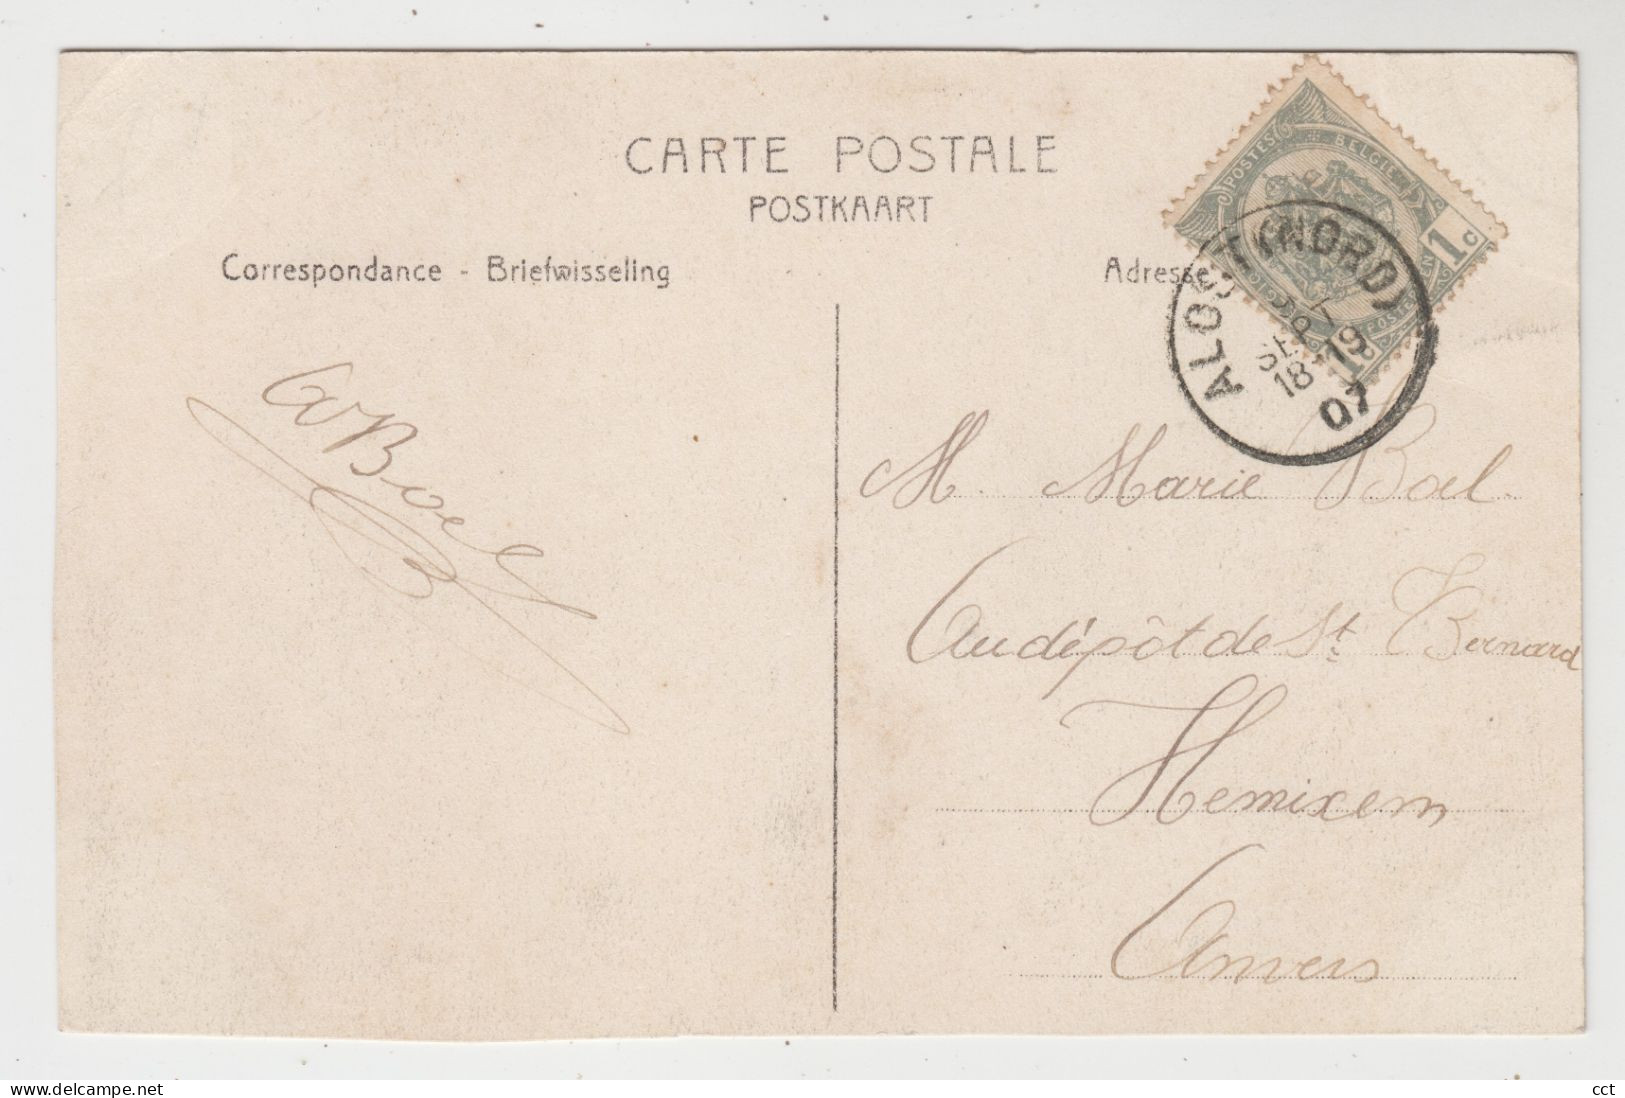 CARTE POSTALE
POSTKAART
Correspondance - Briefwisseling
Adresse
POSTES BELGIE
1 c
ALOST (NORD)
SEPT
18-19
07
Boel
M. Marie Boel.
Au dépôt de St. Bernard
Hemixem
Anvers
delcampe.net
cct